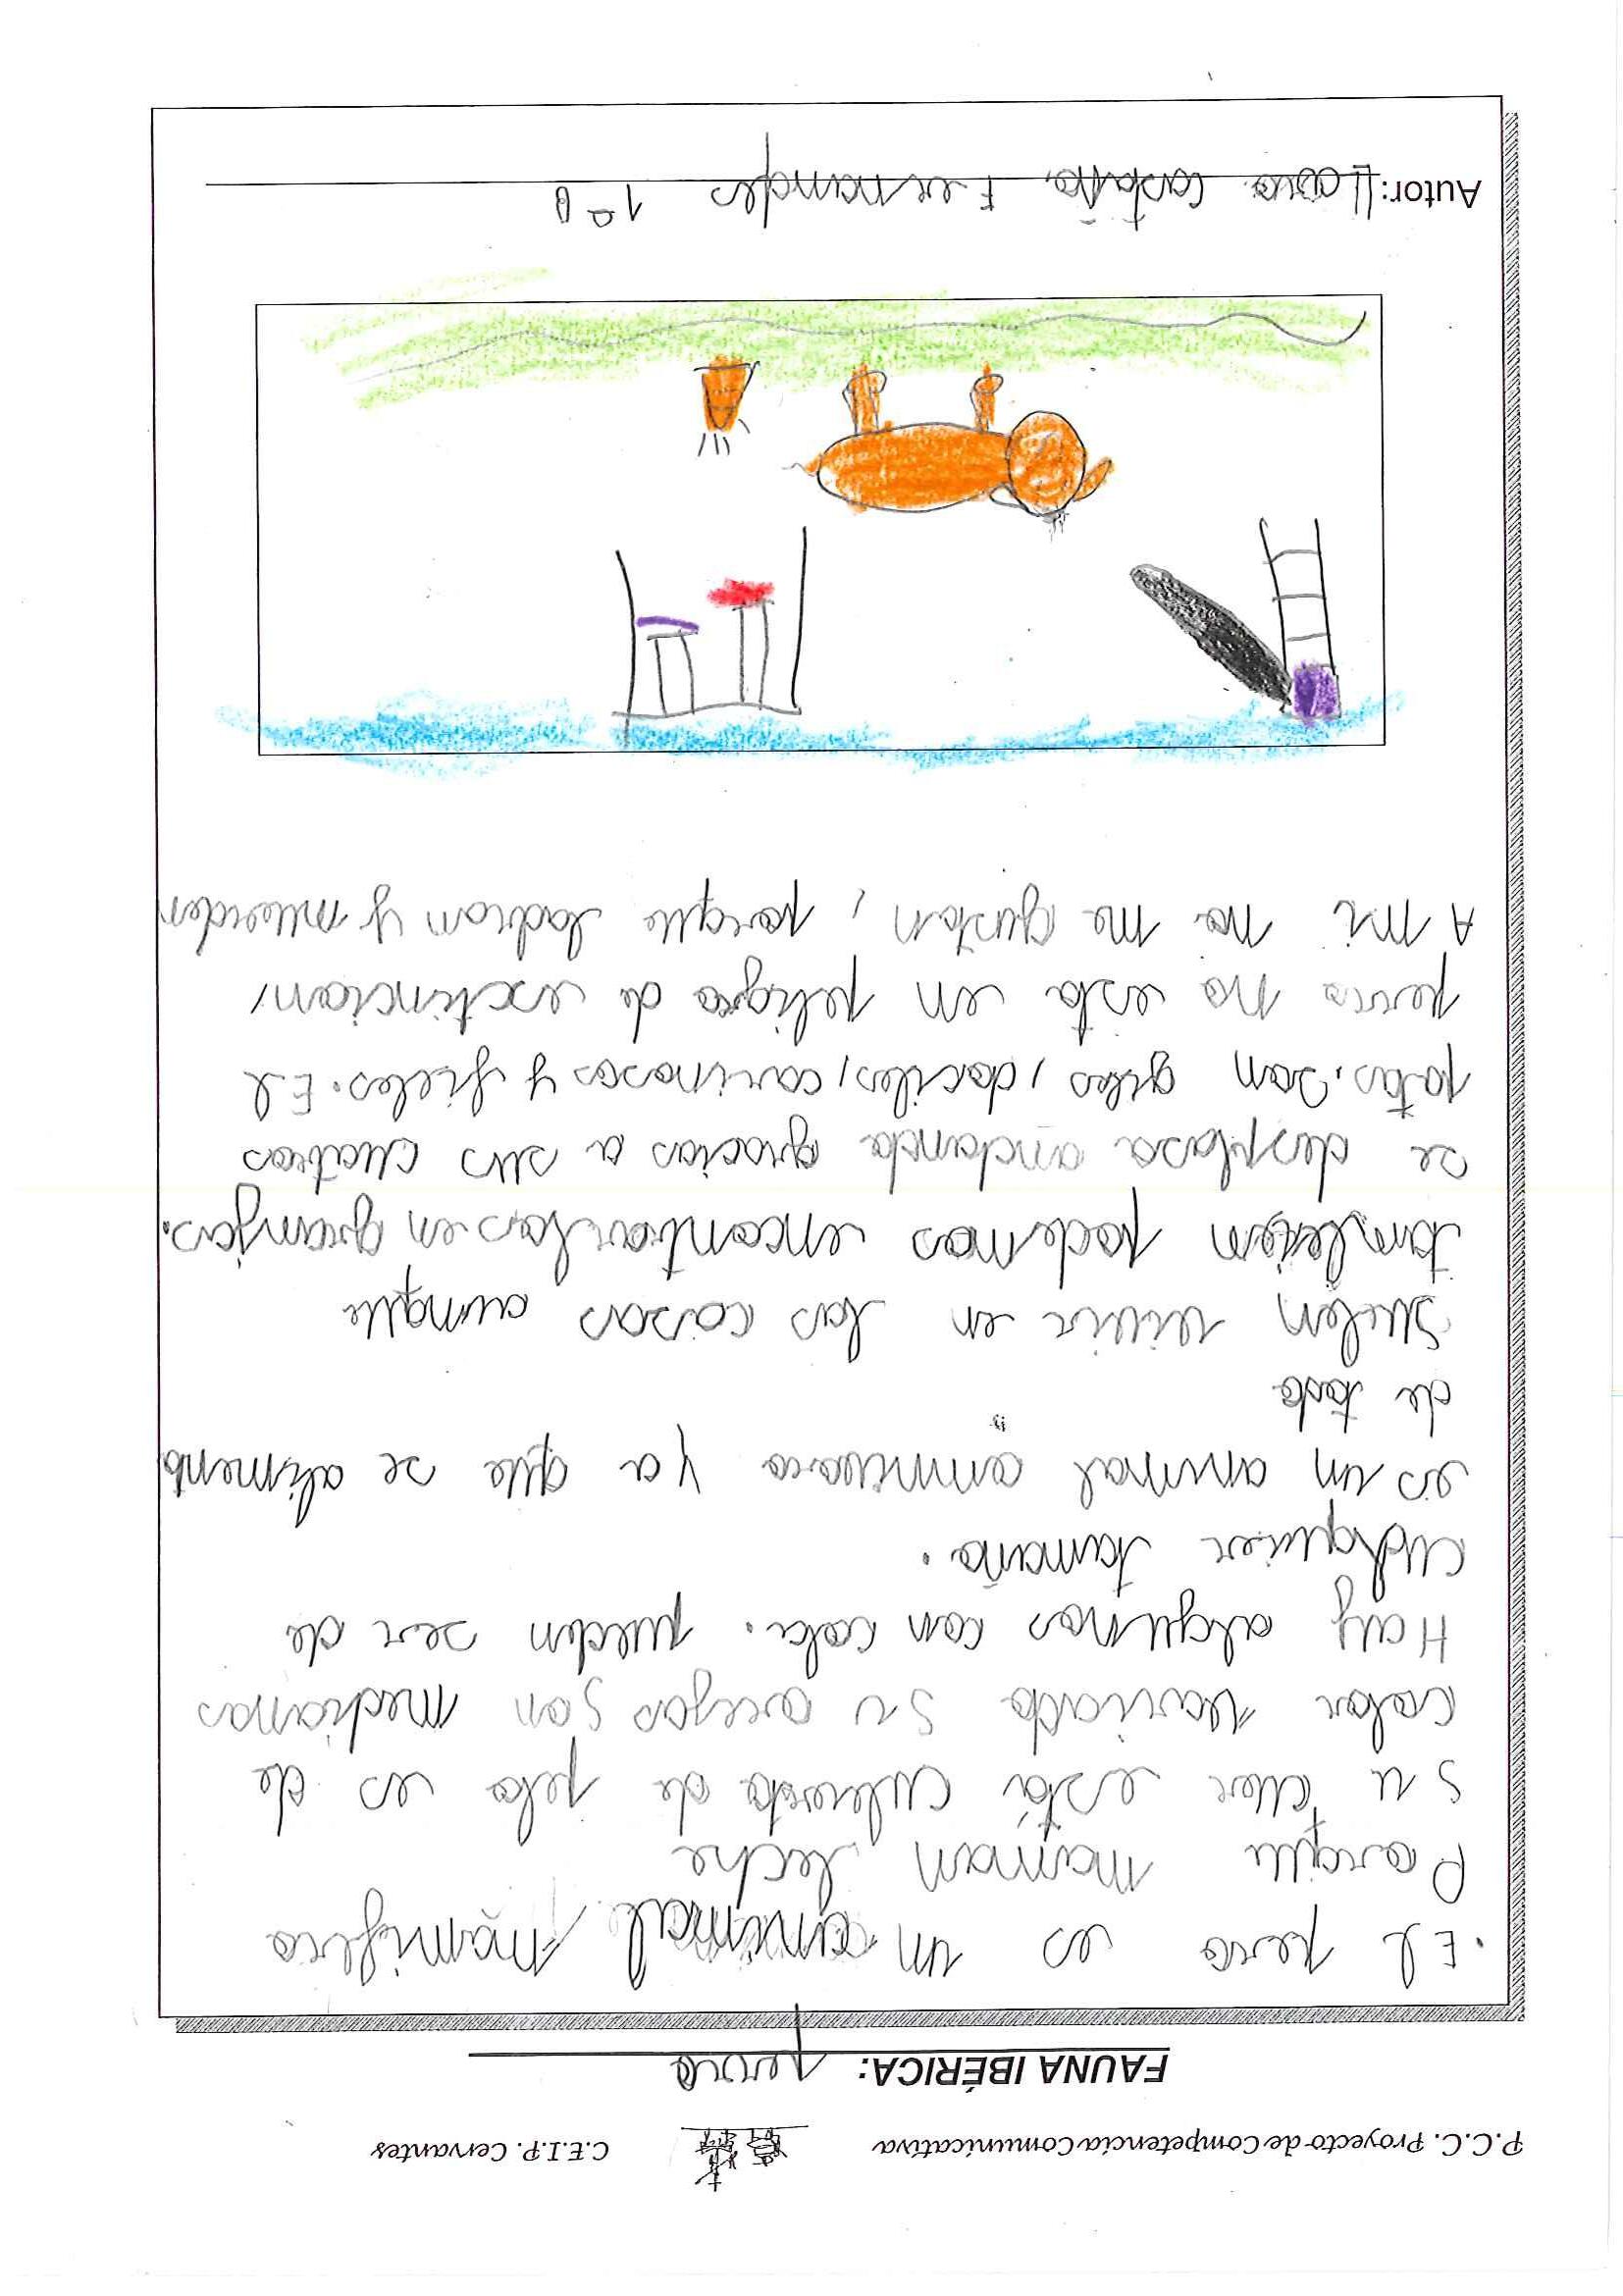 P.C.C. Proyecto de Competencia Comunicativa C.E.I.P. Cervantes
FAUNA IBÉRICA: perro
.El perro es un animal mamífero
Porque maman leche
su cuer está cubierto de pelo es de
color variado su orejas son medianas
Hay algunos con cola. pueden ser de
cualquier tamaño.
es un animal omnivoro ya que se alimenta
de todo
Suelen vivir en las casas aunque
tambien podemos encontrarlos en granjas.
se desplasa andando gracias a sus cuatros
patas. Son giles, dociles, carinosos y fieles. El
perro no esta en peligro de extincion,
A mi no me gustan, porque ladran y muerden
Autor: Castaño Fernandes 1º B